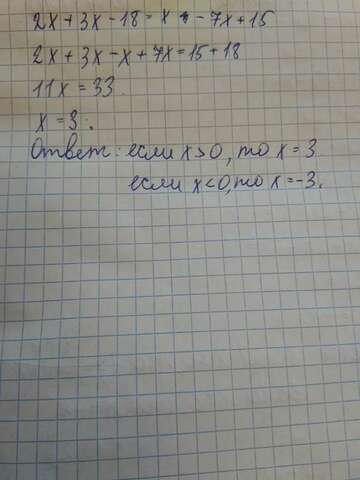 2x + 3x - 18 = x - 7x + 15
2x + 3x - x + 7x = 15 + 18
11x = 33.
x = 3.
Ответ: если x > 0, то x = 3
если x < 0, то x = -3.